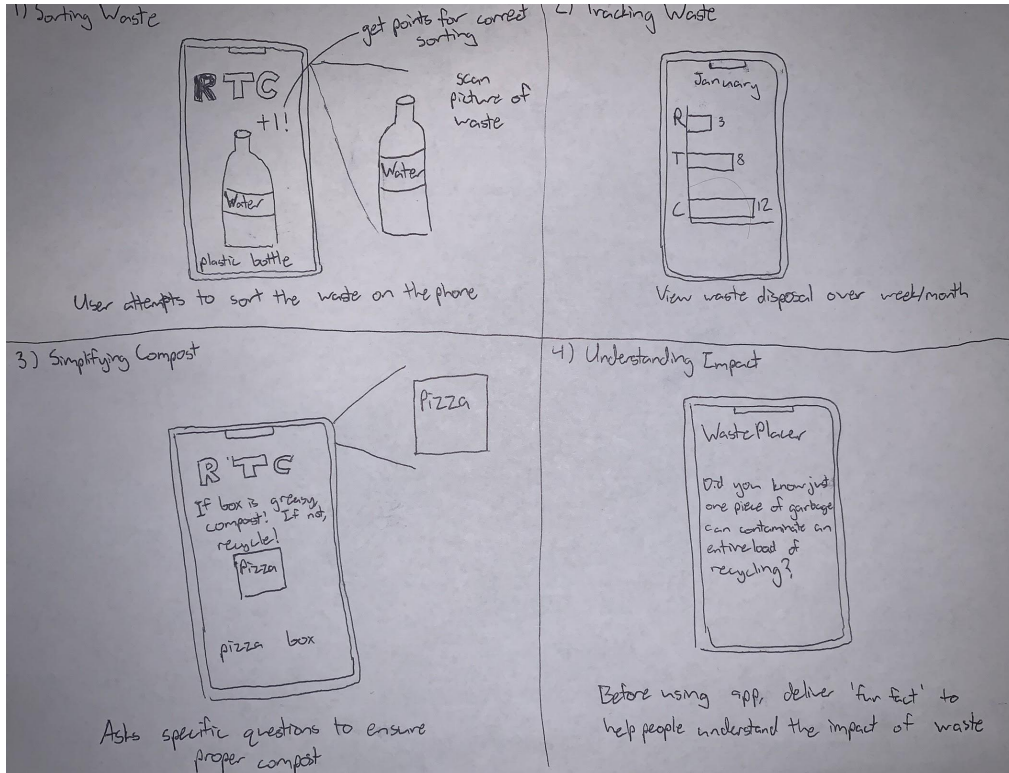 1) Sorting Waste
get points for correct
sorting
RTC
+1!
Water
plastic bottle
scan
picture of
waste
Water
User attempts to sort the waste on the phone
2) Tracking Waste
January
R 3
T 8
C 12
View waste disposal over week/month
3) Simplifying Compost
Pizza
RTC
If box is greasy,
compost! If not,
recycle!
Pizza
pizza box
Asks specific questions to ensure
proper compost
4) Understanding Impact
WastePlacer
Did you know just
one piece of garbage
can contaminate an
entire load of
recycling?
Before using app, deliver 'fun fact' to
help people understand the impact of waste